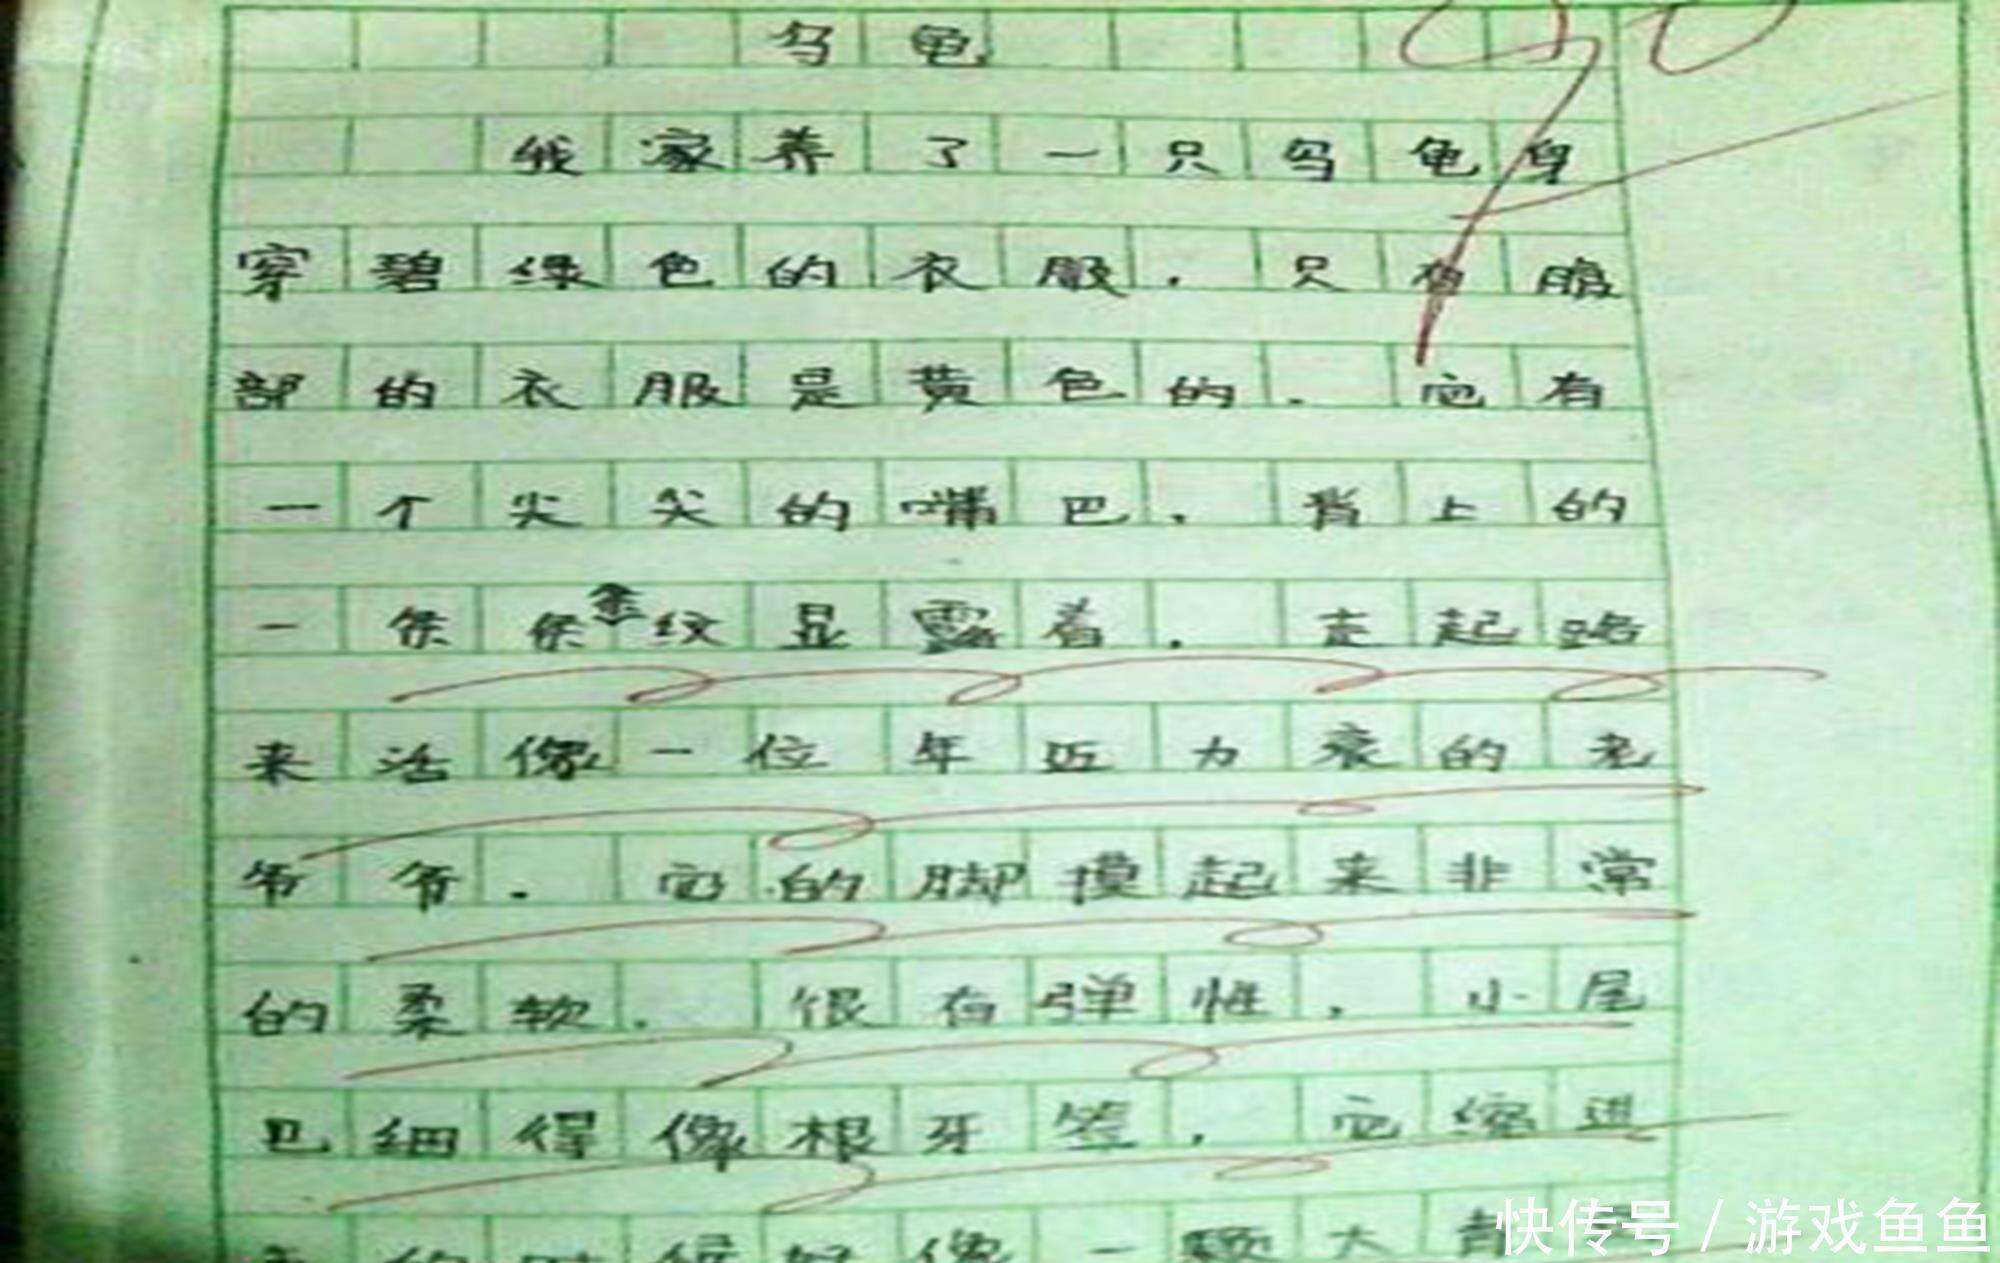 乌龟
我家养了一只乌龟身
穿碧绿色的衣服，只有腹
部的衣服是黄色的．它有
一个尖尖的嘴巴，背上的
一条条条纹显露着，走起路
来活像一位年迈力衰的老
爷爷．它的脚摸起来非常
的柔软．很有弹性，小尾
巴细得像根牙签，它缩进
的时候好像一颗大青
快传号/游戏鱼鱼